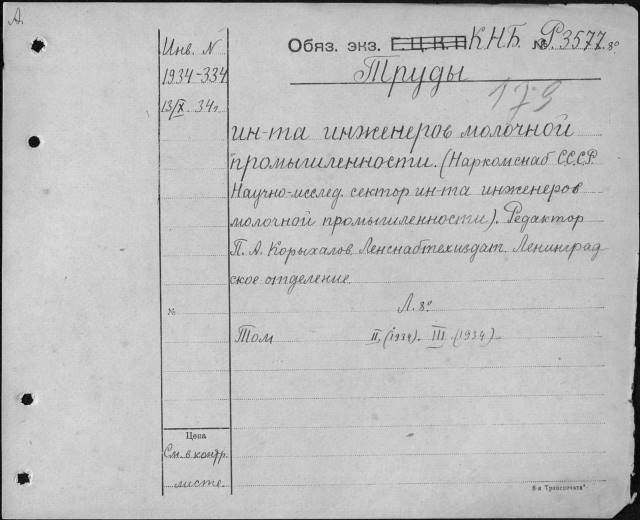 А.
Инв. N
1934-334
13/IX 34г.
Обяз. экз. Г.Ц.К.П К.Н.Б. № Р3577.8°
Труды
179
ин-та инженеров молочной
промышленности. (Наркомснаб С.С.С.Р.
Научно-исслед. сектор ин-та инженеров
молочной промышленности). Редактор
П. А. Корыхалов. Ленснабтехиздат. Ленинград
ское отделение
Л. 8°
№
Том II, (1934). III (1934)
Цена
См. в контр.
листе.
8-я Транспечать"